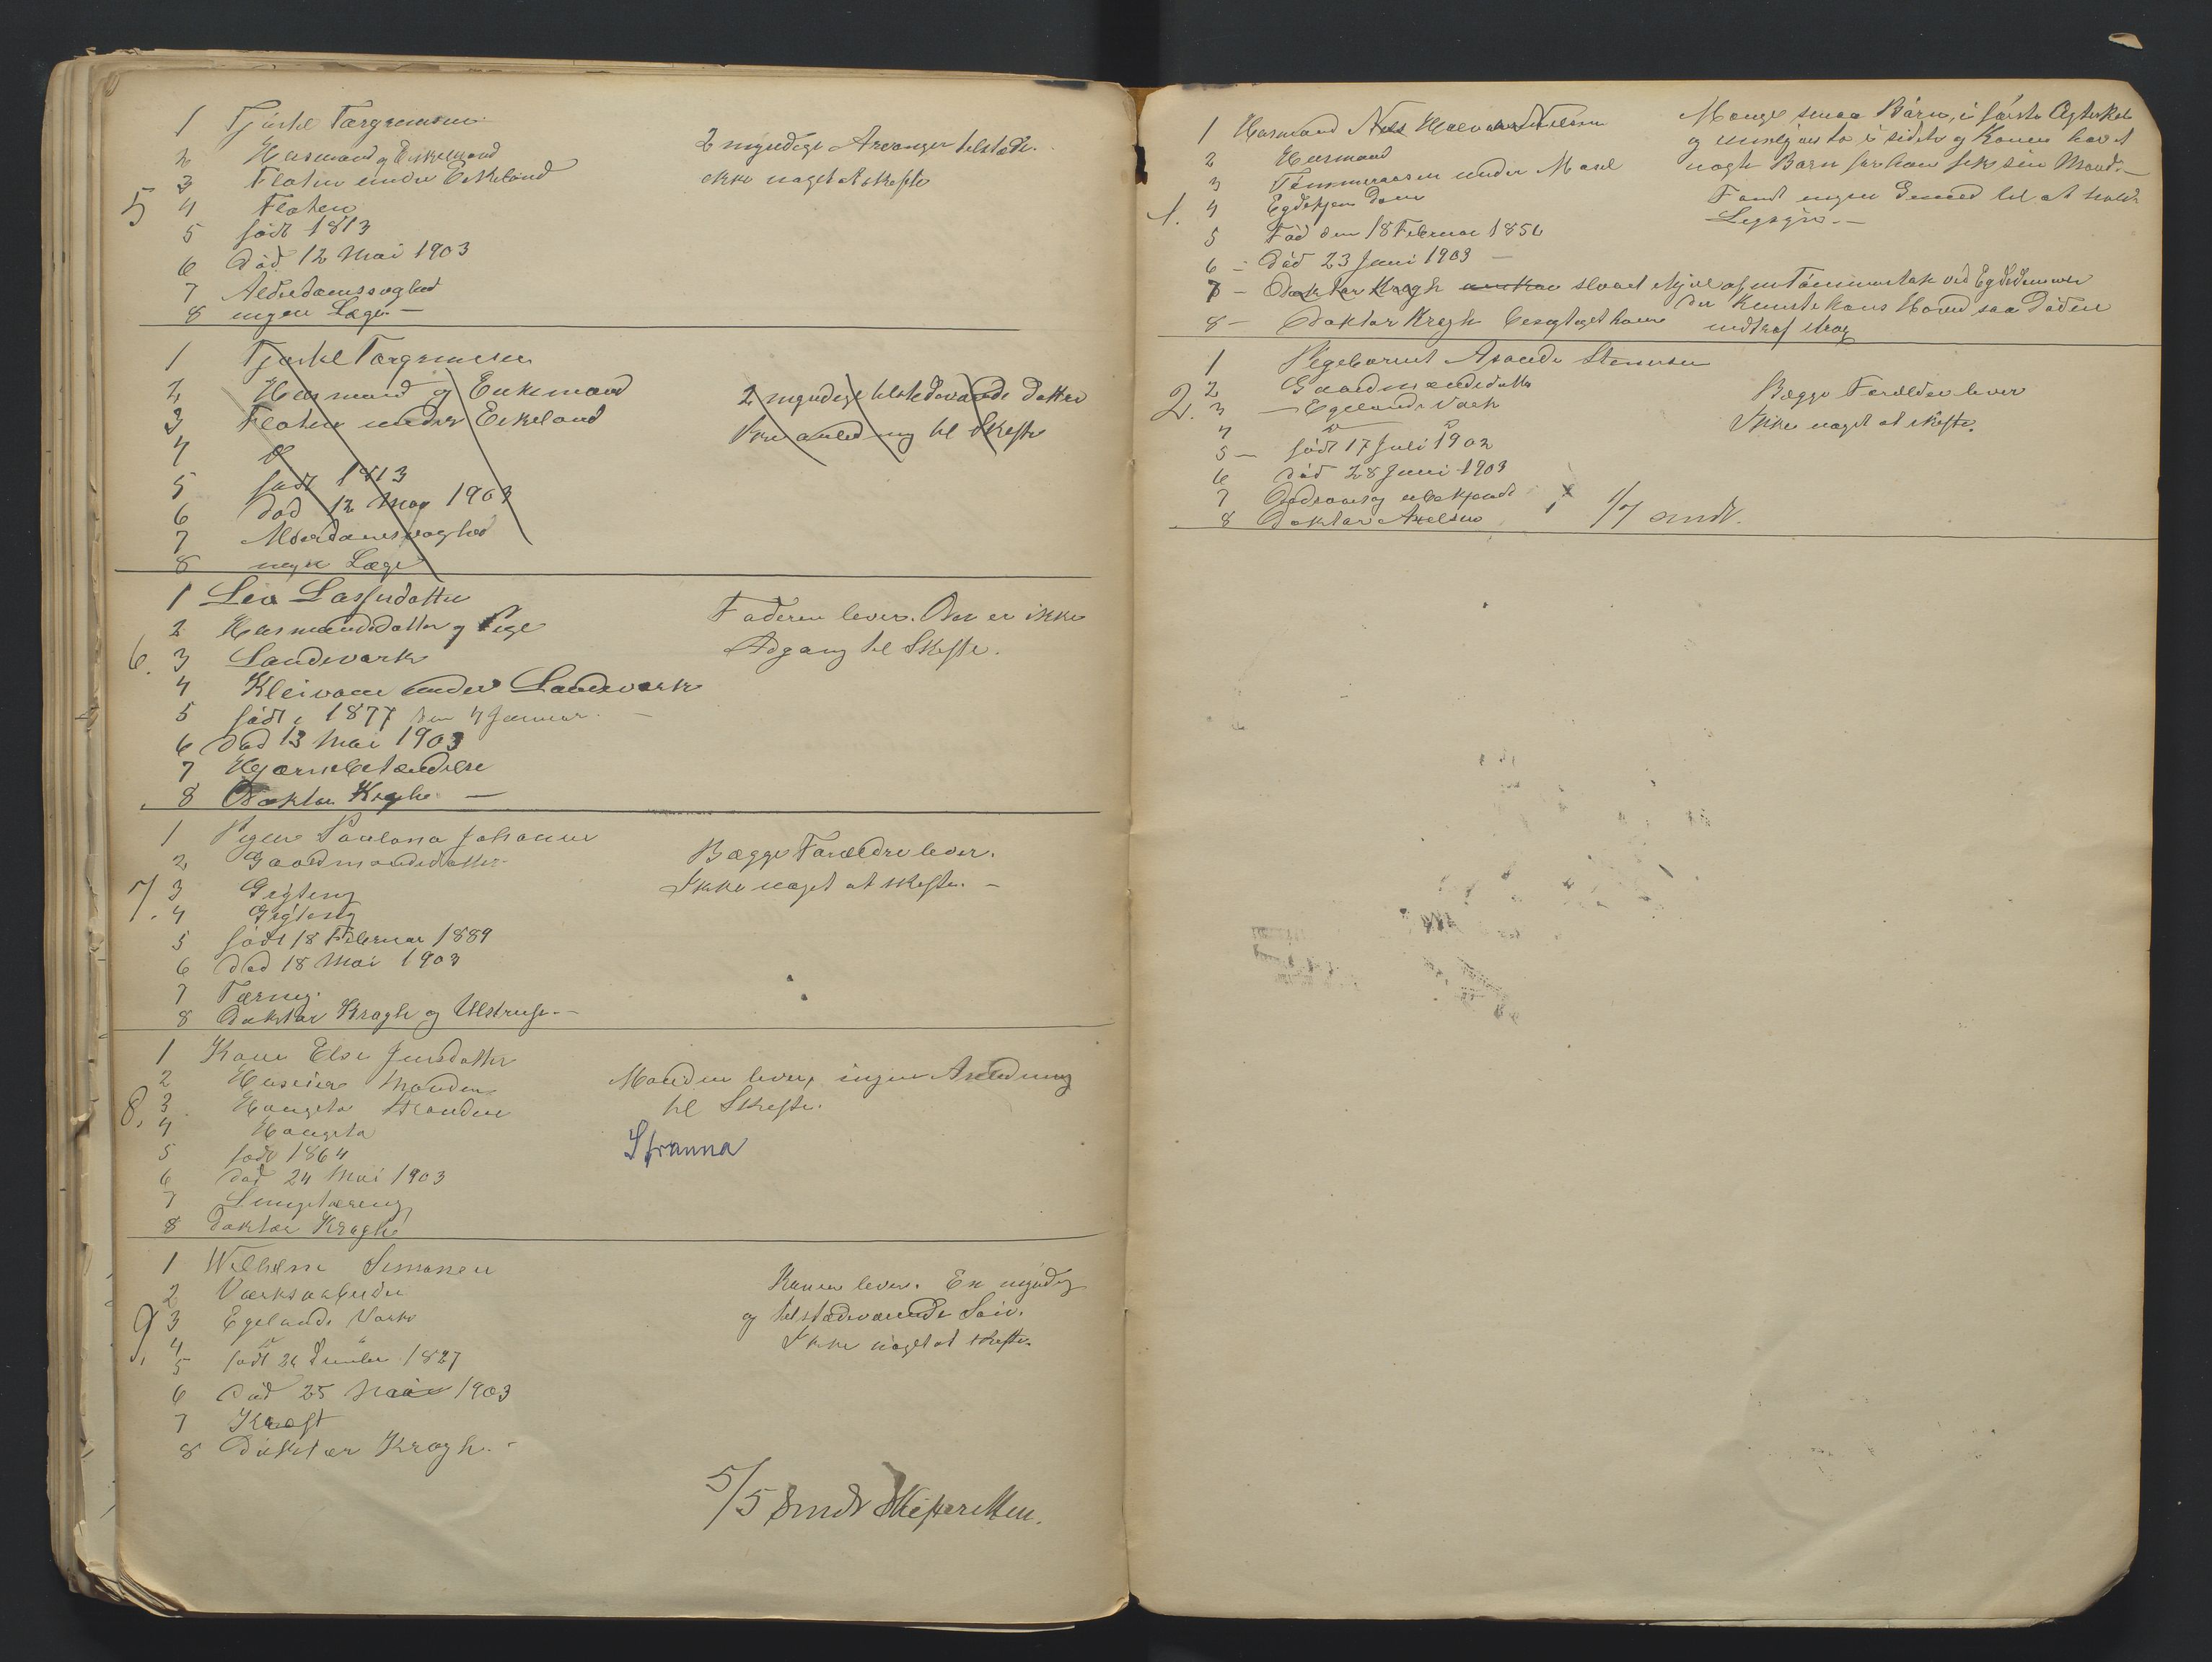 5
1 Tjøstel Tærgrimsen
2 Husmand og Enkemand
3 Floten under Eikeland
4 Floten
5 født 1813
6 død 12 Mai 1903
7 Alderdomssvaghed
8 ingen Læge. —
2 myndige Arvinger tilstæde.
ikke noget at skifte
1 Tjøstel Tærgrimsen
2 Husmand og Enkemand
3 Floten under Eikeland
4
5 født 1813
6 død 12 May 1903
7 Alderdomssvaghed
8 ingen Læge
2 myndige tilstedeværende Døttre
Ikke anledning til Skifte
6.
1 Lea Lassesdatter
2 Husmandsdatter og Pige
3 Landsverk
4 Kleivane under Landsverk
5 født i 1877 den 4 Januar. —
6 død 13 Mai 1903
7 Hjærnebetændelse
8 Doktor Krogh —
Faderen lever. Der er ikke
Adgang til Skifte.
7.
1 Pigen Paulona Johanne
2 Gaardmandsdatter
3
4
5 født 18 Februar 1889
6 død 18 Mai 1903
7 Tæring.
8 Doktor Krogh og Ulstrup. —
Begge Forældre lever.
Ikke noget at skifte. —
8.
1 Kone Else Jensdatter
2 Manden
3 Haugeto Stranden
4 Haugeto
5 født 1864
6 død 24 Mai 1903
7 Lungetæring
8 Doktor Krogh
Manden lever, ingen Anledning
til Skifte.
Stranna
9.
1 Wilhelm Simonsen
2 Værksarbeider
3 Egelands Værk
4 " "
5 født 26 1827
6 død 25 Mai 1903
7 Kræft
8 Doktor Krogh. -
Konen lever. En myndig
og tilstædeværende Søn.
Ikke noget at skifte.
5/5 Sendt Skifteretten.
1.
1 Husmand Nels Halvor Nielsen
2 Husmand
3 Tømmeraasen under Moxl
4
5 Fød den 18 Februar 1856
6 — død 23 Juni 1903 —
7 — Doktor Krogh slaaet ihjel af en Tømmerstok ved Egdedammen
der knuste hans Hoved saa Døden
indtraf strax
8 — Doktor Krogh besigtiget ham
Mange smaa Børn, i første Ægteskab
og to i sidste og Konen havt
nogle Børn før hun fik sin Mand. —
Fandt ingen Grund til at holde
2.
1 Pigebarnet Asonda Stensen
2 Gaardmandsdatter
3 — Egelands Værk
4 " "
5 — født 17 Juli 1902
6 død 28 Juni 1903
7 Dødsaarsag ubekjendt
8 Doktor Axelsen
1/7 sendt.
Begge Forældre lever
Ikke noget at skifte.